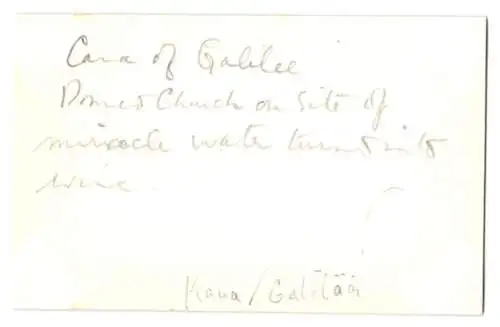 Cana of Galilee
Domed Church on site of
miracle water turned into
wine.
Kana/Galiläa